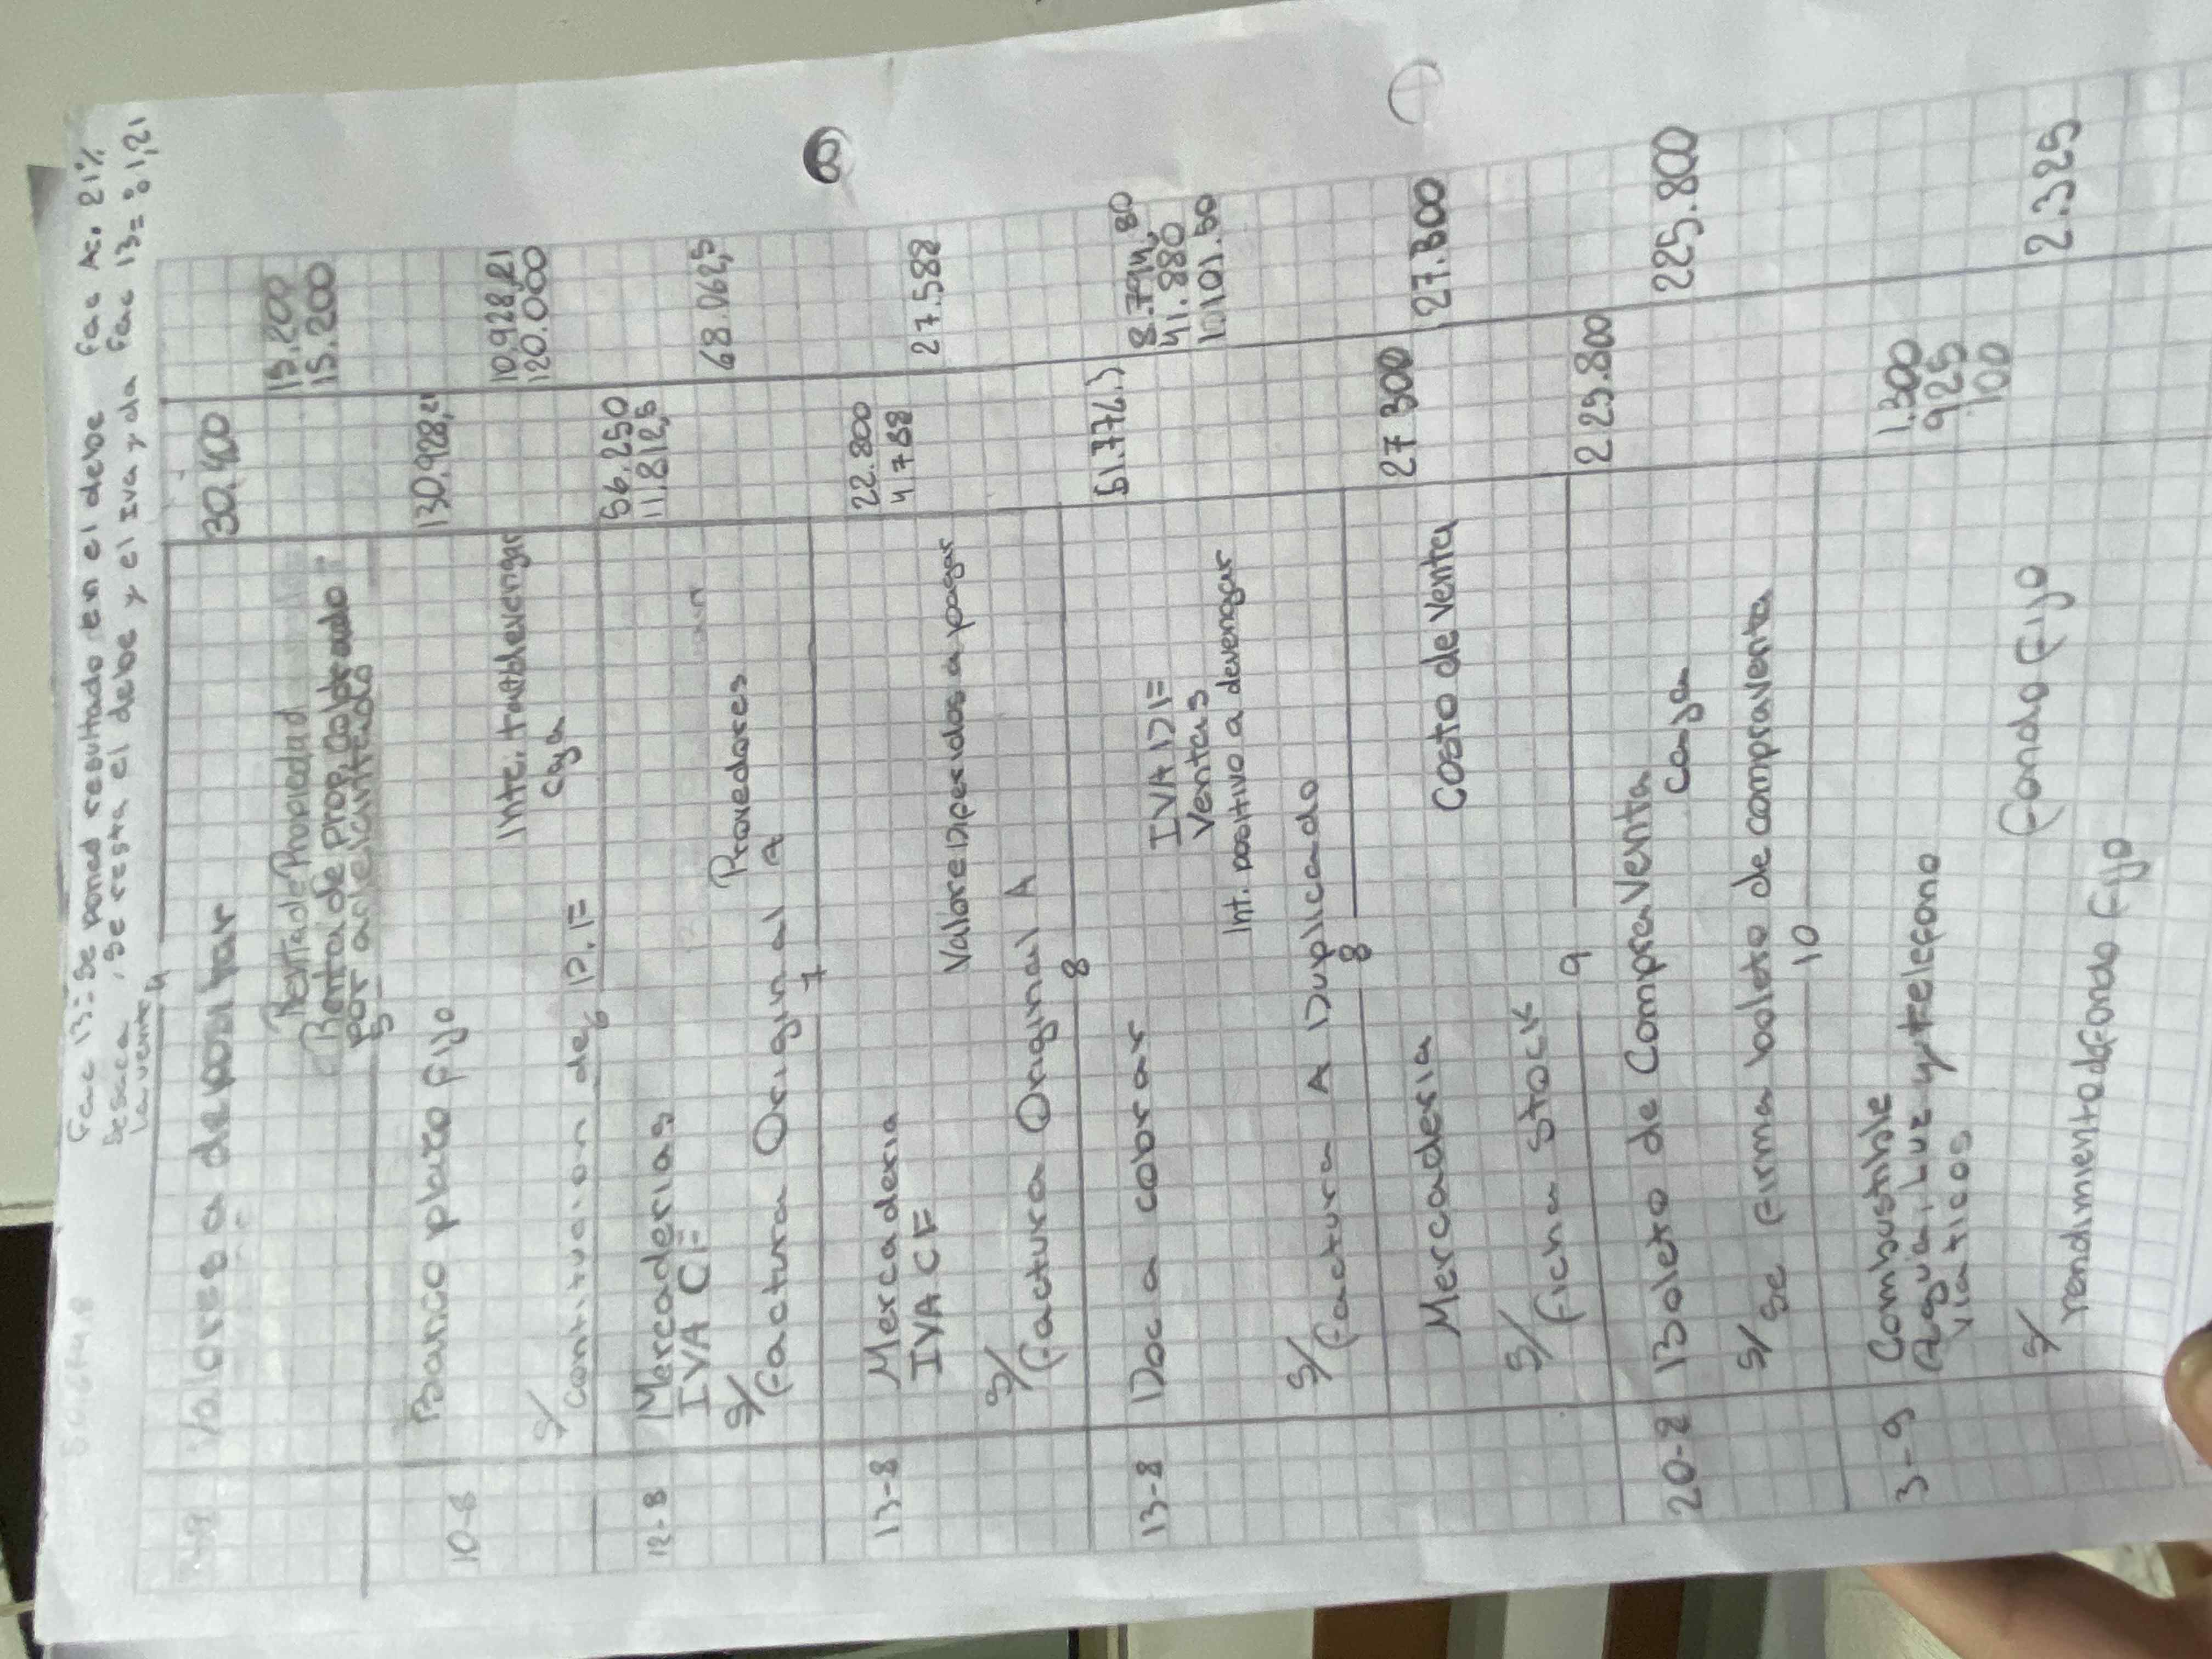 Fac 13= Se pones resultado en el debe Fac A. 21%
se saca , se resta el debe y el Iva y da Fac 13= % 1,21
la venta 4
Valores a depositar 30,400
Renta de Propiedad 15.200
Renta de Prop. Cobrado 15.200
por anticipado
5
10-8 Banco plazo Fijo 130.928,21
Inte. a devengar 10.928,21
Caja 120.000
S/
contitucion de P.F
6
12-8 Mercaderias 56.250
IVA CF 11.812,5
Provedores 68.062,5
S/
factura Original A
7
13-8 Mercaderia 22.800
IVA CF 4.788
Valore Diperidos a pagar 27.588
S/
factura Original A
8
13-8 Doc a cobrar
IVA DF 8.794,80
Ventas 41.880
Int. positivo a devengar
S/
factura A Duplicado
8
Mercaderia 27300
Costo de Venta 27.300
S/
ficha Stock
9
20-8 Boleto de CompraVenta 225.800
Caja 225.800
S/
se firma boleto de compraventa
10
3-9 Combustible 1.300
Agua, Luz y telefono 925
Viaticos 100
Fondo Fijo 2.325
S/
rendimiento de fondo fijo